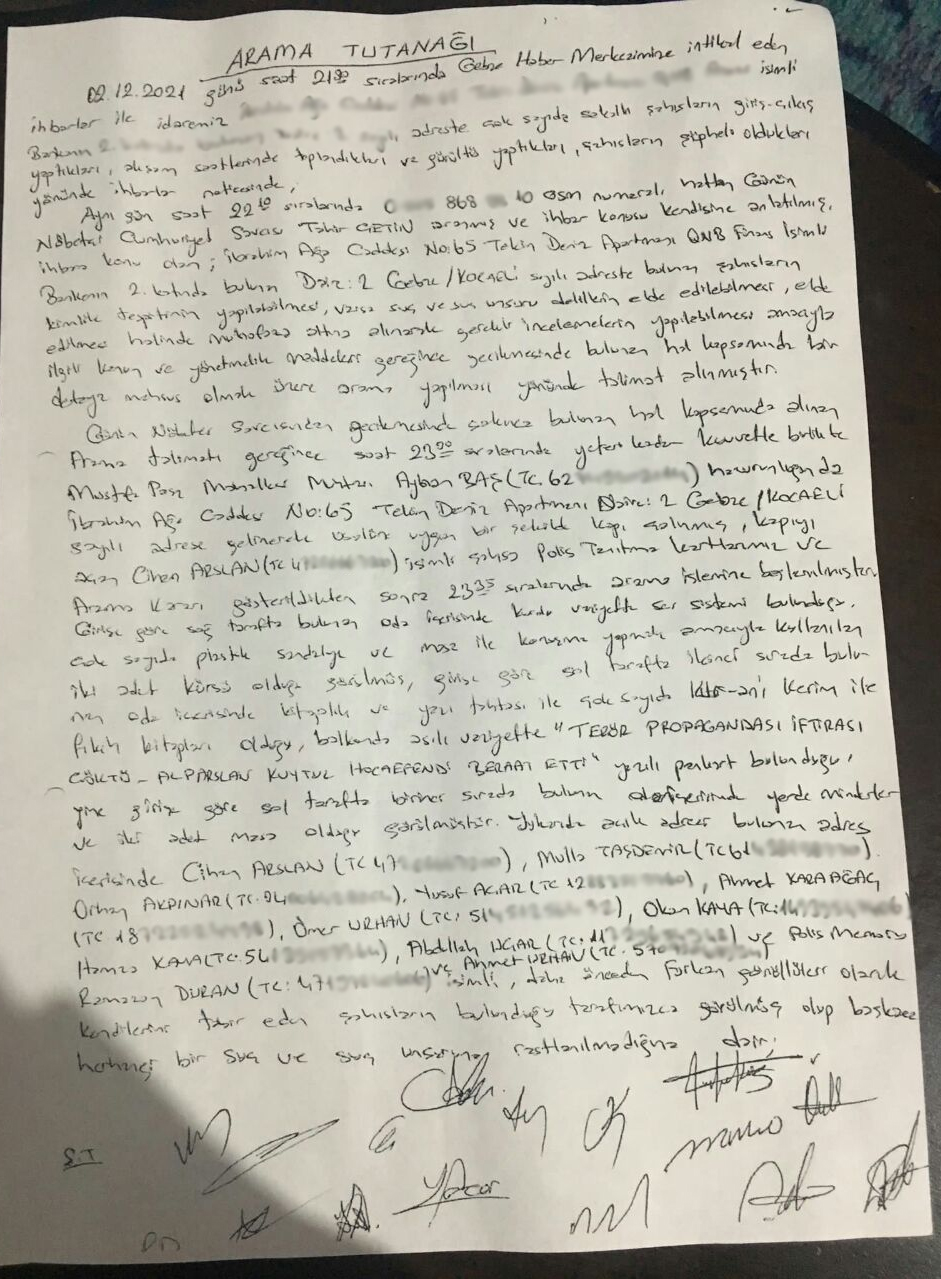 ARAMA TUTANAĞI
02.12.2021 günü saat 21:00 sıralarında Gebze Haber Merkezimize intikal eden
ihbarlar ile idaremiz isimli
Bankanın 2. adreste çok sayıda sakallı şahısların giriş-çıkış
yaptıkları, akşam saatlerinde toplandıkları ve gürültü yaptıkları, şahısların şüpheli oldukları
yönünde ihbarlar neticesinde;
Aynı gün saat 22:10 sıralarında 0 868 10 GSM numaralı hattan Günün
Nöbetçi Cumhuriyet Savcısı Tahir ÇETİN aranmış ve ihbar konusu kendisine anlatılmış,
ihbara konu olan; İbrahim Ağa Caddesi No:65 Tekin Deniz Apartmanı QNB Finans İsimli
Bankanın 2. katında bulunan Daire: 2 Gebze/KOCAELİ sayılı adreste bulunan şahısların
kimlik tespitinin yapılabilmesi, varsa suç ve suç unsuru delillerin elde edilebilmesi, elde
edilmesi halinde muhafaza altına alınarak gerekli incelemelerin yapılabilmesi amacıyla
ilgili kanun ve yönetmelik maddeleri gereğince gecikmesinde bulunan hal kapsamında bir
defaya mahsus olmak üzere arama yapılması yönünde talimat alınmıştır.
Günün Nöbetçi Savcısından gecikmesinde sakınca bulunan hal kapsamında alınan
Arama talimatı gereğince saat 23:30 sıralarında yeteri kadar kuvvetle birlikte
Mustafa Paşa Mahallesi Muhtarı Ayhan BAŞ (TC. 62 ) hazurunluğunda
İbrahim Ağa Caddesi No:65 Tekin Deniz Apartmanı Daire: 2 Gebze/KOCAELİ
sayılı adrese gelinerek usulüne uygun bir şekilde kapı çalınmış, kapıyı
açan Cihan ARSLAN (TC 4 ) isimli şahsa Polis Tanıtma kartlarımız ve
Arama Kararı gösterildikten sonra 23:35 sıralarında arama işlemine başlanılmıştır.
Girişe göre sağ tarafta bulunan oda içerisinde kurulu vaziyette ses sistemi bulunduğu,
çok sayıda plastik sandalye ve masa ile konuşma yapmak amacıyla kullanılan
iki adet kürsü olduğu görülmüş, girişe göre sol tarafta ikinci sırada bulu-
nan oda içerisinde kitaplık ve yazı tahtası ile çok sayıda Kur-an'ı Kerim ile
fıkıh kitapları olduğu, balkonda asılı vaziyette "TERÖR PROPAGANDASI İFTİRASI
ÇÖKTÜ - ALPARSLAN KUYTUL HOCAEFENDİ BERAAT ETTİ" yazılı pankart bulunduğu,
yine girişe göre sol tarafta birinci sırada bulunan oda içerisinde yerde minderler
ve iki adet masa olduğu görülmüştür. Yukarıda açık adresi bulunan adres
içerisinde Cihan ARSLAN (TC 47 ), Molla TAŞDEMİR (TC 61 ),
Orhan AKPINAR (TC. 24 ), Yusuf ACAR (TC 12 ), Ahmet KARAAĞAÇ
(TC. 18 ), Ömer URHAN (TC: 51 ), Okan KAYA (TC: 14 )
Hamza KAYA (TC. 56 ), Abdullah UÇAR (TC: 11 ) ve Polis Memuru
Ramazan DURAN (TC: 47 ) ve Ahmet URHAN (TC. 570 ) isimli, daha önceden Furkan gönüllüleri olarak
kendilerini tabir eden şahısların bulunduğu tarafımızca görülmüş olup başkaca
herhangi bir suç ve suç unsuruna rastlanılmadığına dair;
S.T